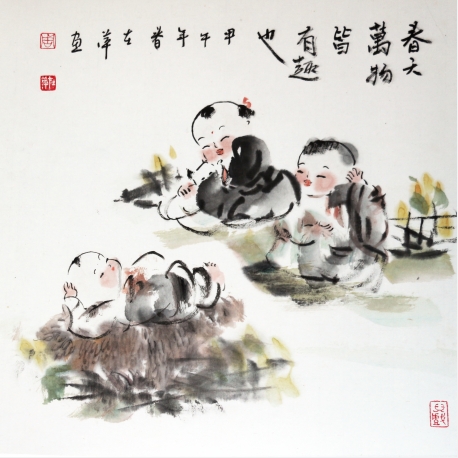 春天
萬物
皆
有趣
也
甲午年春左萍画